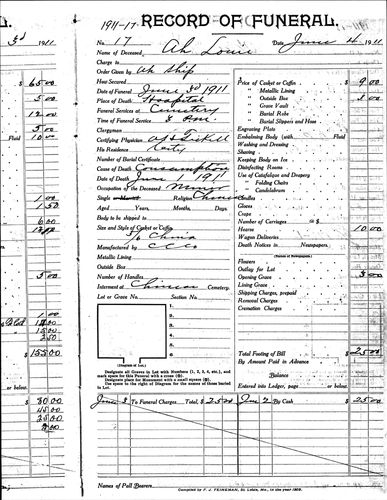 L. 1911-17 RECORD OF FUNERAL.
3d 1911 No. 17 Date June 4 1911
Name of Deceased Ah Louie
Charge to
Order Given by Ah Ship
How Secured
Date of Funeral June 3d 1911
Place of Death Hospital
Funeral Services at Cemetery
Time of Funeral Service 8 am.
Clergyman
Certifying Physician
His Residence City
Number of Burial Certificate
Cause of Death Consumption
Date of Death June 1911
Occupation of the Deceased Miner
Single or Married Religion Chinese
Aged Years, Months, Days.
Body to be shipped to
Size and Style of Casket or Coffin
Manufactured by
Metallic Lining
Outside Box
Number of Handles
Interment at Chinese Cemetery.
Lot or Grave No. Section No.
1.
2.
3.
4.
5.
6.
(Diagram of Lot.)
Designate all Graves in Lot with Numbers (1, 2, 3, 4, etc.), and
mark space for this Funeral with a cross
Designate place for Monument with a small square
Use space to the right of Diagram for the names of those buried
in Lot.
Price of Casket or Coffin $ 9.00
" Metallic Lining
" Outside Box
" Grave Vault
" Burial Robe
" Burial Slippers and Hose
Engraving Plate
Embalming Body (with Fluid)
Washing and Dressing
Shaving
Keeping Body on Ice
Disinfecting Rooms
Use of Catafalque and Drapery
" Folding Chairs
" Candelabrum
Handles
Gloves
Crape
Number of Carriages @ $
Hearse 10.00
Wagon Deliveries
Death Notices in Newspapers.
(Names of Newspapers)
Flowers
Outlay for Lot
Opening Grave 3.00
Lining Grave
Shipping Charges, prepaid
Removal Charges
Cremation Charges
Total Footing of Bill $ 25.00
By Amount Paid in Advance
Balance
Entered into Ledger, page or below.
June 3 To Funeral Charges Total, $ 25.00 June 2 By Cash $ 25.00
Names of Pall Bearers
Compiled by F. J. FEINEMAN, St. Louis, Mo., in the year 1909.
65.00
5.00
12.00
5.00
Fluid 10.00
1.00
1.50
6.00
5.00
1.00
15.00
2.50
$ 155.00
or below.
30.00
45.00